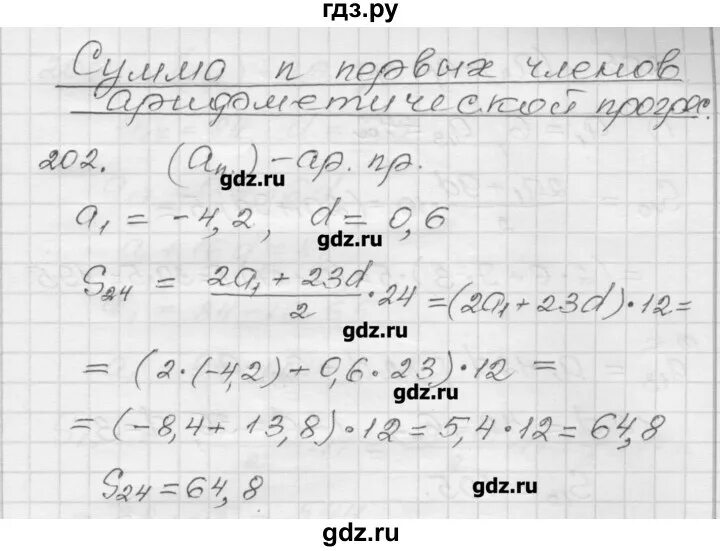 гдз.ру
Сумма n первых членов
арифметической прогрес.
202. (aₙ) - ар. пр.
gdz.ru
a₁ = -4,2, d = 0,6
gdz.ru
S₂₄ = (2a₁ + 23d)/2 · 24 = (2a₁ + 23d) · 12 =
gdz.ru
= (2 · (-4,2) + 0,6 · 23) · 12 =
gdz.ru
= (-8,4 + 13,8) · 12 = 5,4 · 12 = 64,8
S₂₄ = 64,8
gdz.ru
gdz.ru